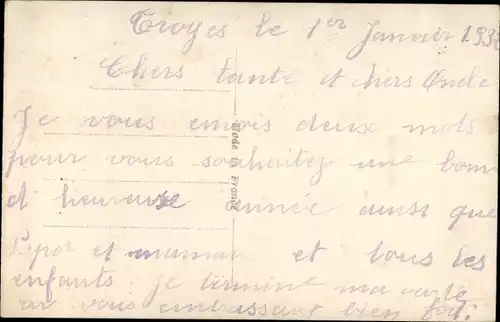 Troyes le 1er Janvier 193
Chers tante et chers Oncle
Je vous envois deux mots
pour vous souhaitez une bonn
et heureuse année ainsi que
Papa et maman et tous les
enfants. je termine ma carte
en vous embrassant bien fort.
Made in France